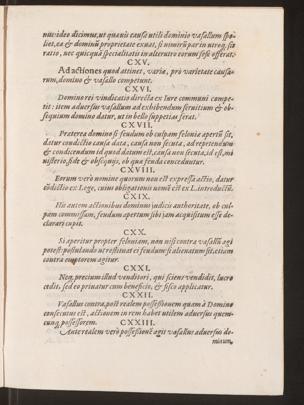 nuc video dicimus, ut quauis causa utili dominio vasallum spo-
liet, ea & dominū proprietate exuat, si nimirū par in utroq. sit
ratio, nec quicquā specialitatis in alterutro eorum sese offerat.
CXV.
Ad actiones quod attinet, variæ, pro varietate causa-
rum, domino & vasallo competunt.
CXVI.
Domino rei vindicatio directa ex Iure communi compe-
tit: item aduersus vasallum ad exhibendum seruitium & ob-
sequium domino datur, ut in bello suppetias ferat.
CXVII.
Præterea domino si feudum ob culpam felonia apertū sit,
datur condictio causa data, causa non secuta, ad repetendum
& condicendum id quod datum est, causa non secuta, ad est, mi
nisterio, fide & obsequijs, ob quæ feuda conceduntur.
CXVIII.
Eorum verò nomine quorum non est expressa actio, datur
cōdictio ex Lege, cuius obligationis nomē est ex L. introductū.
CXIX.
His autem actionibus dominus judicis authoritate, ob cul-
pam commissam, feudum apertum sibi jam acquisitum esse de-
clarari cupit.
CXX.
Si aperitur propter feloniam, non nisi contra vasallū agi
potest: postulando ut restituat ei feudum si alienatum sit, etiam
contra emptorem agitur.
CXXI.
Neq. precium illud venditori, qui sciens vendidit, lucro
cedit, sed eo priuatur cum beneficio, & fisco applicatur.
CXXII.
Vasallus contra, post realem possessionem quam à Domino
consecutus est, actionem in rem habet utilem aduersus quem-
cunq. possessorem.
CXXIII.
Ante realem verò possessionē agit vasallus aduersus do-
minum,